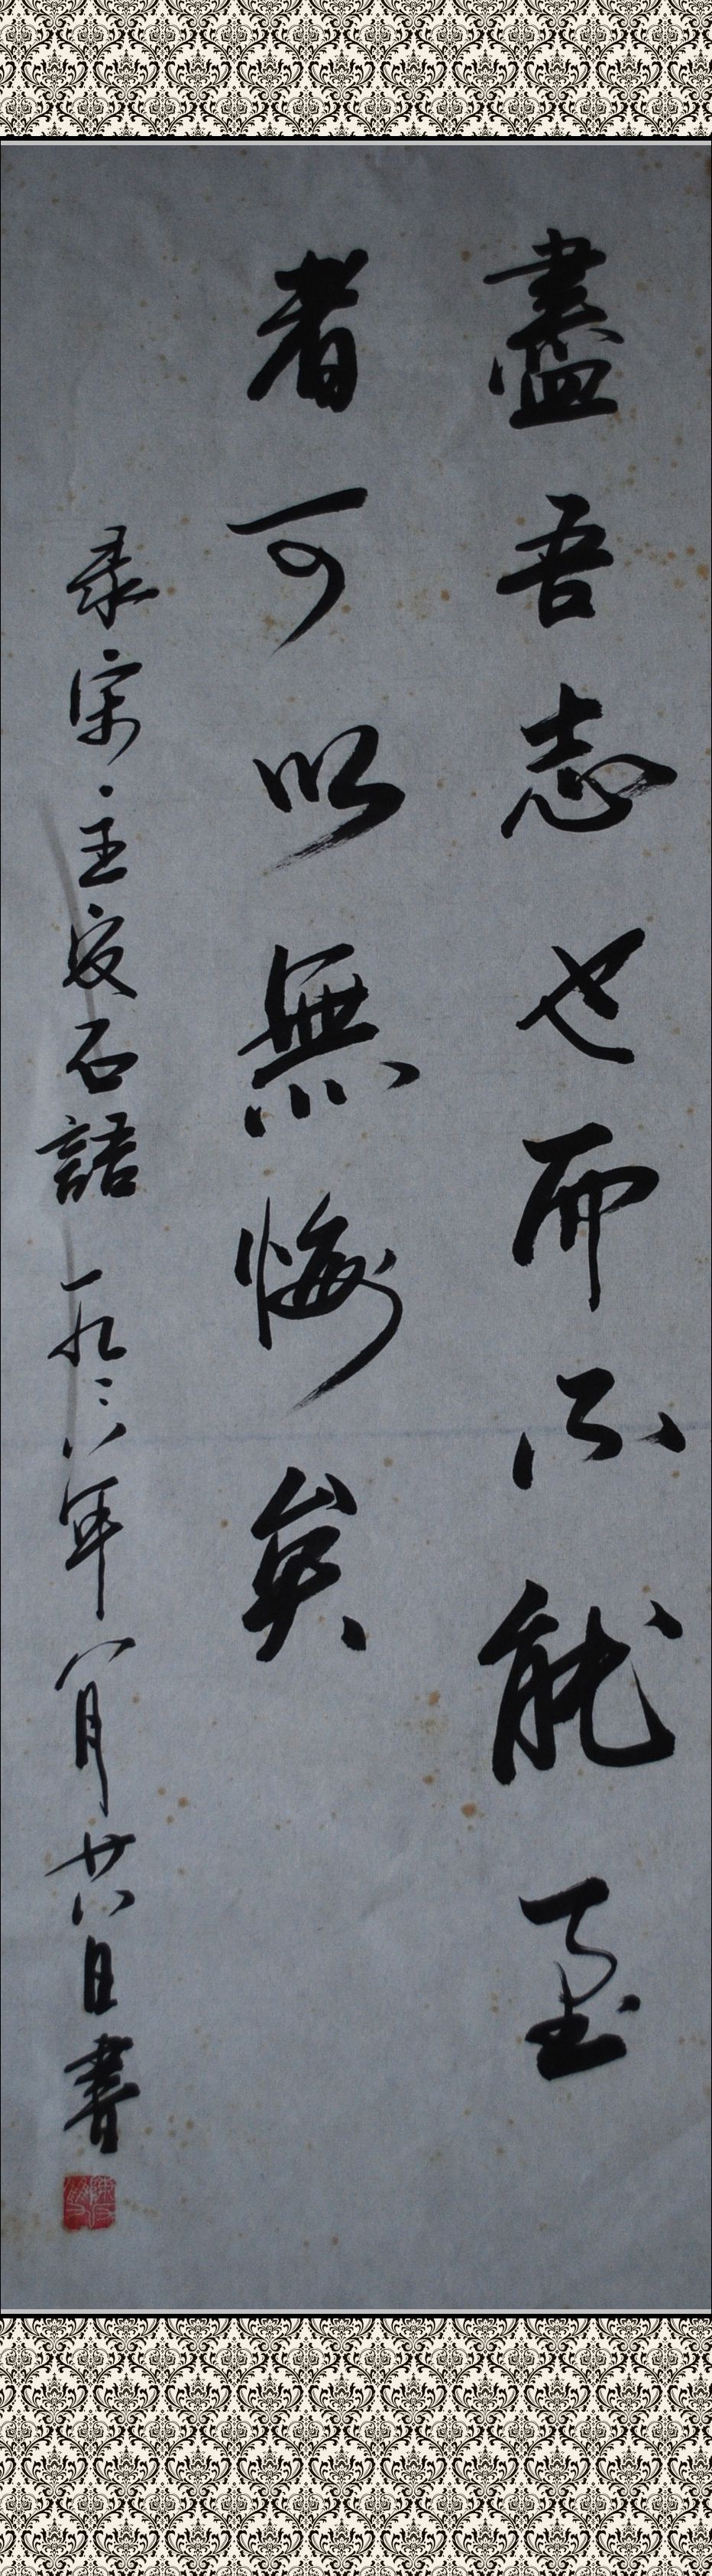 盡吾志也而不能至
者可以無悔矣
录宋·王安石語 一九八八年八月廿八日書